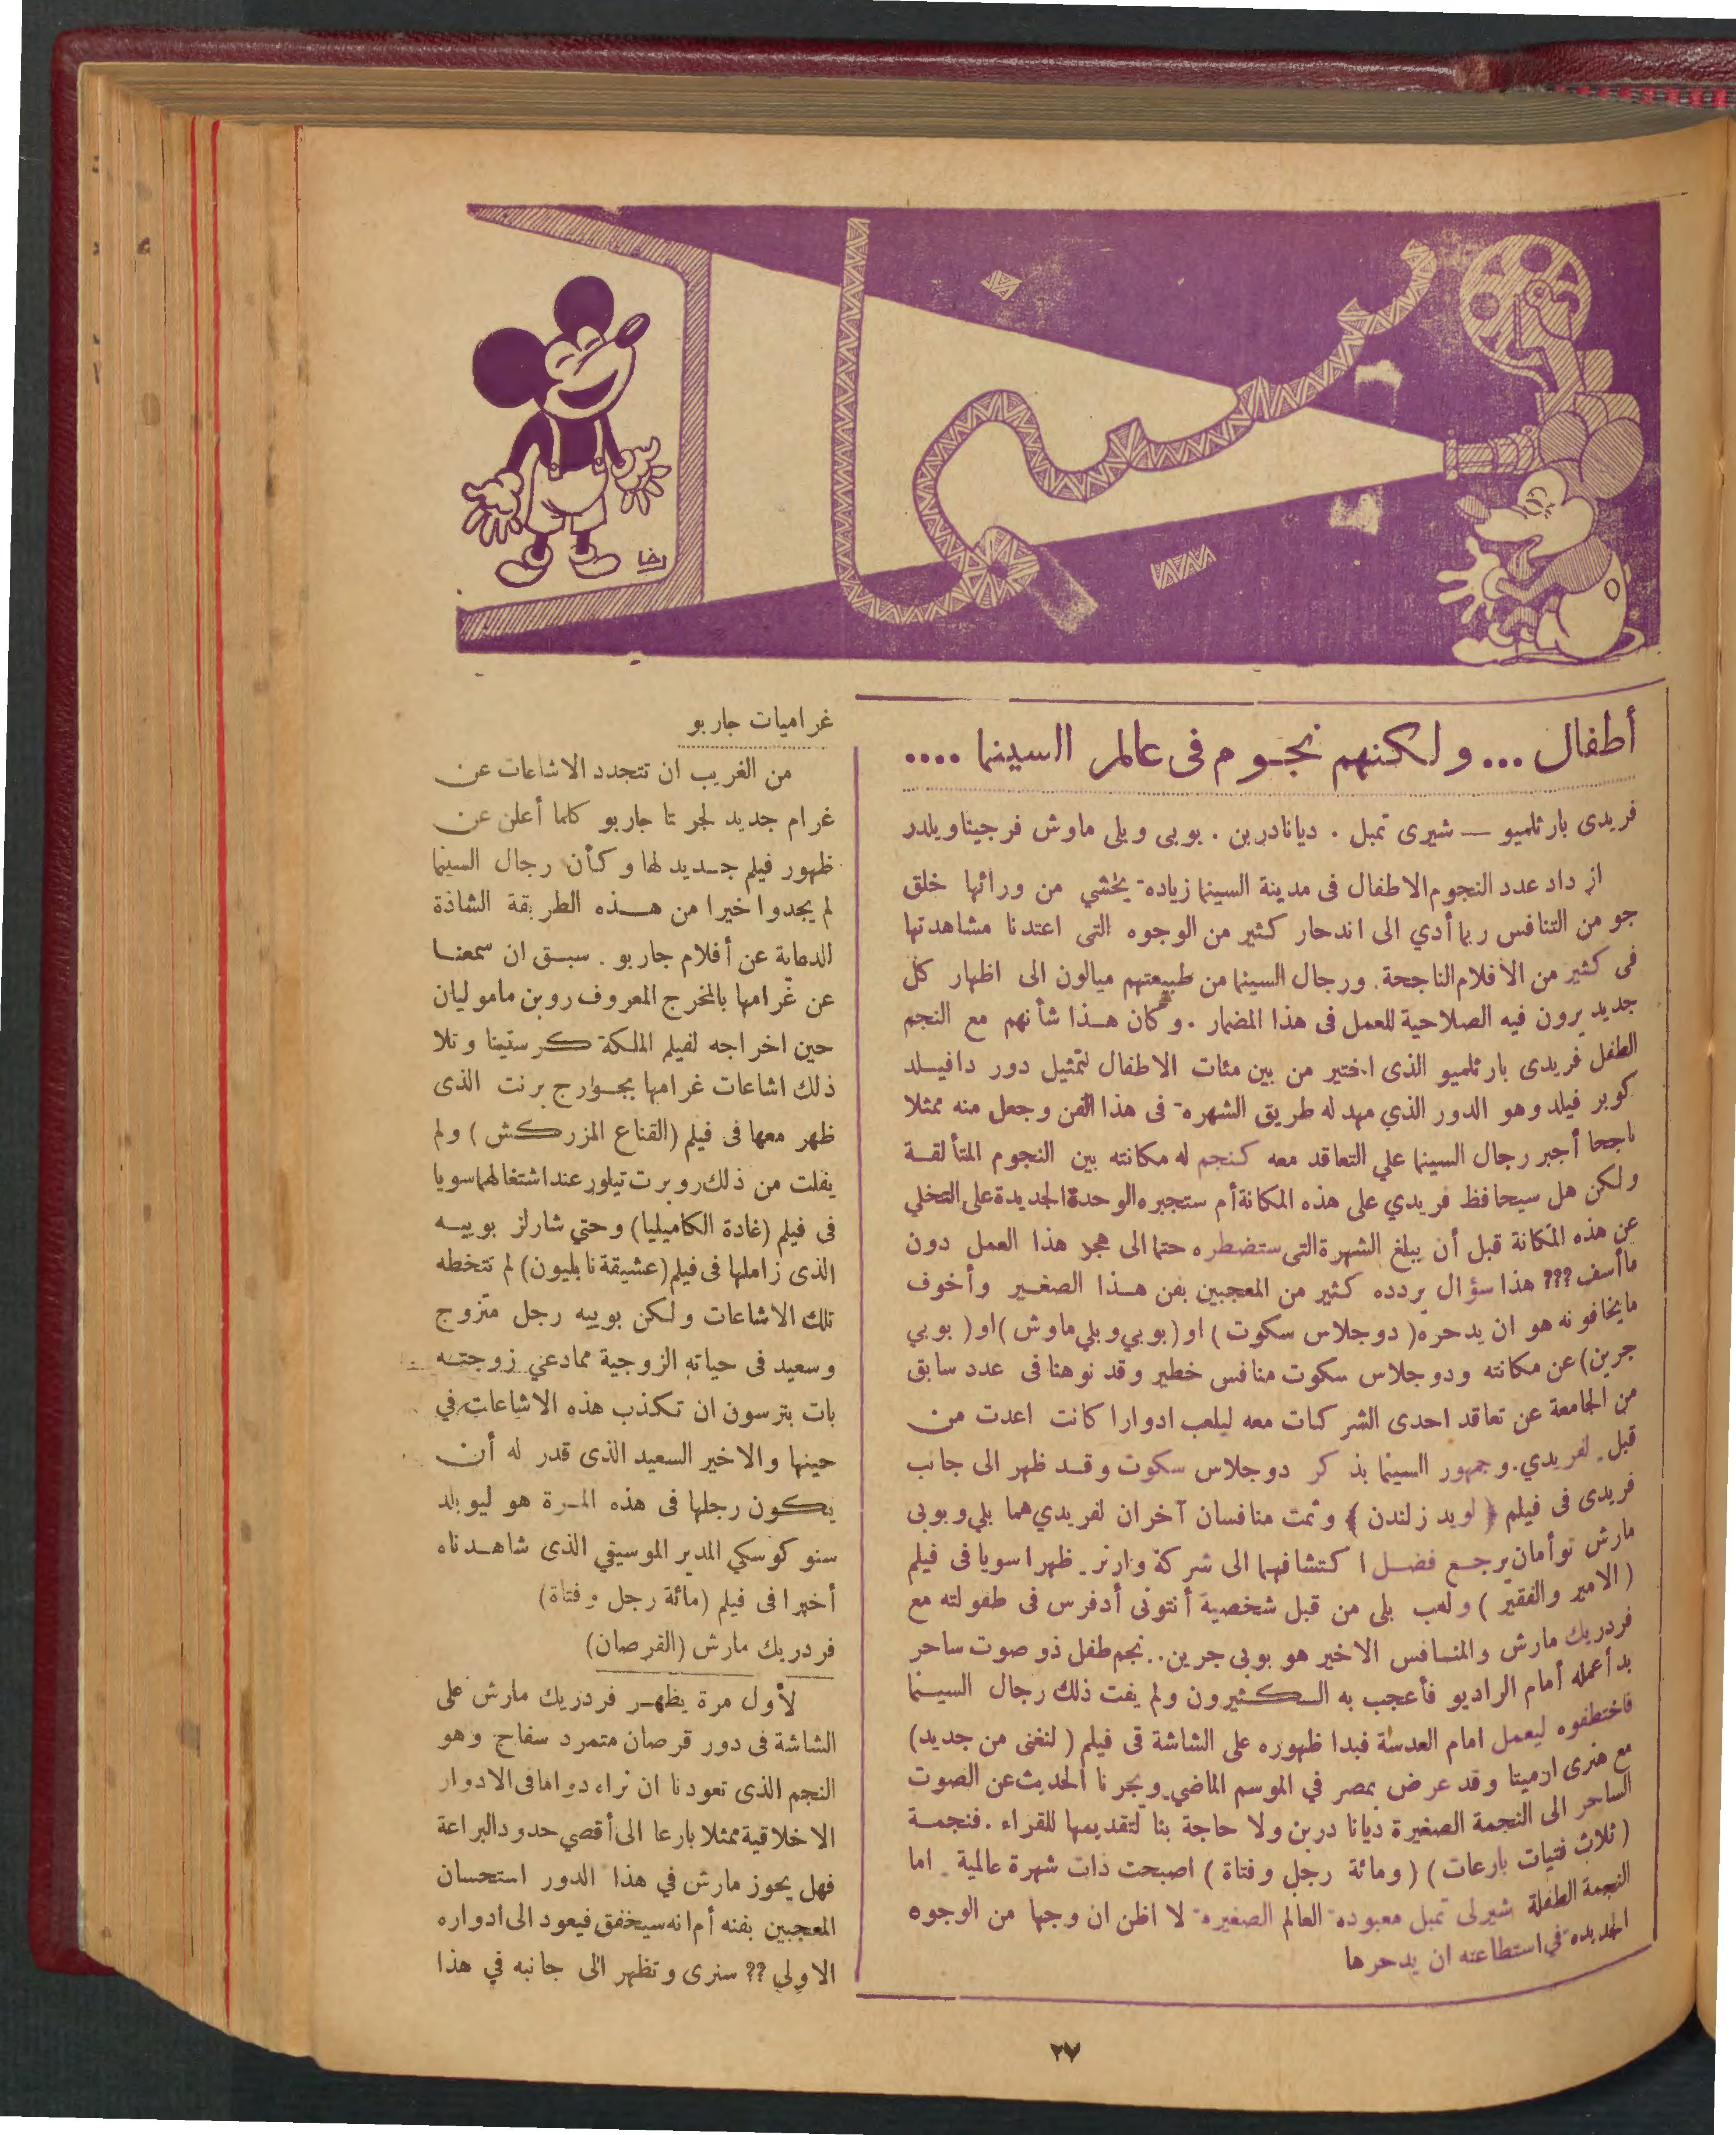 سينما
رضا
أطفال ... ولكنهم نجوم فى عالم السينما ....
فريدى بارثلميو — شيرى تمبل . ديانادربن . بوبى وبلى ماوش فرجيناويلدر
ازداد عدد النجوم الاطفال فى مدينة السينما زيادة يخشي من ورائها خلق
جو من التنافس ربما أدي الى اندحار كثير من الوجوه التى اعتدنا مشاهدتها
فى كثير من الافلام الناجحة. ورجال السينما من طبيعتهم ميالون الى اظهار كل
جديد يرون فيه الصلاحية للعمل فى هذا المضمار . وكان هذا شأنهم مع النجم
الطفل فريدى بارثلميو الذى اختير من بين مئات الاطفال لتمثيل دور دافيلد
كوبر فيلد وهو الدور الذي مهد له طريق الشهرة فى هذا الفن وجعل منه ممثلا
ناجحا أجبر رجال السينما علي التعاقد معه كنجم له مكانته بين النجوم المتألقة
ولكن هل سيحافظ فريدي على هذه المكانة أم ستجبره الوحدة الجديدة على التخلي
عن هذه المكانة قبل أن يبلغ الشهرة التى ستضطره حتما الى هجر هذا العمل دون
ماأسف ??? هذا سؤال يردده كثير من المعجبين بفن هذا الصغير وأخوف
مايخافونه هو ان يدحره( دوجلاس سكوت ) او ( بوبي وبلي ماوش ) او ( بوبي
جرين) عن مكانته ودوجلاس سكوت منافس خطير وقد نوهنا فى عدد سابق
من الجامعة عن تعاقد احدى الشركات معه ليلعب ادوارا كانت اعدت من
قبل لفريدي. وجمهور السينما يذكر دوجلاس سكوت وقد ظهر الى جانب
فريدى فى فيلم ( لويدز لندن ) وثمت منافسان آخران لفريدي هما بلي وبوبى
مارش توأمان يرجع فضل اكتشافهما الى شركة وارنر . ظهرا سويا فى فيلم
( الامير والفقير ) ولعب بلى من قبل شخصية أنتونى أدفرس فى طفولته مع
فردريك مارش والمنافس الاخير هو بوبى جرين .. نجم طفل ذو صوت ساحر
بدأ عمله أمام الراديو فأعجب به الكثيرون ولم يفت ذلك رجال السينما
فاختطفوه ليعمل امام العدسة فبدا ظهوره على الشاشة فى فيلم ( لنغنى من جديد)
مع هنرى ارميتا وقد عرض بمصر في الموسم الماضي ويجرنا الحديث عن الصوت
الساحر الى النجمة الصغيرة ديانا دربن ولا حاجة بنا لتقديمها للقراء . فنجمة
( ثلاث فتيات بارعات ) ( ومائة رجل وفتاة ) اصبحت ذات شهرة عالمية . اما
النجمة الطفلة شيرلى تمبل معبودة العالم الصغيرة لا اظن ان وجها من الوجوه
الجديدة في استطاعته ان يدحرها
غراميات جاربو
من الغريب ان تتجدد الاشاعات عن
غرام جديد لجرتا جاربو كلما أعلن عن
ظهور فيلم جديد لها وكأن رجال السينما
لم يجدوا خيرا من هذه الطريقة الشاذة
للدعاية عن أفلام جاربو . سبق ان سمعنا
عن غرامها بالمخرج المعروف روبن ماموليان
حين اخراجه لفيلم الملكة كرستينا وتلا
ذلك اشاعات غرامها بجوارج برنت الذى
ظهر معها فى فيلم (القناع المزركش ) ولم
يفلت من ذلك روبرت تيلور عند اشتغالهما سويا
فى فيلم (غادة الكاميليا) وحتي شارلز بوييه
الذى زاملها فى فيلم (عشيقة نابليون) لم تتخطه
تلك الاشاعات ولكن بوييه رجل متزوج
وسعيد فى حياته الزوجية ممادعي زوجته
بات بترسون ان تكذب هذه الاشاعات في
حينها والاخير السعيد الذى قدر له أن
يكون رجلها فى هذه المرة هو ليوبلد
ستوكوسكي المدير الموسيقي الذى شاهدناه
أخيرا فى فيلم (مائة رجل وفتاة)
فردريك مارش (القرصان)
لأول مرة يظهر فردريك مارش على
الشاشة فى دور قرصان متمرد سفاح وهو
النجم الذى تعودنا ان نراه دواما فى الادوار
الاخلاقية ممثلا بارعا الى أقصي حدود البراعة
فهل يحوز مارش في هذا الدور استحسان
المعجبين بفنه أم انه سيخفق فيعود الى ادواره
الاولي ?? سنرى وتظهر الى جانبه في هذا
٢٧